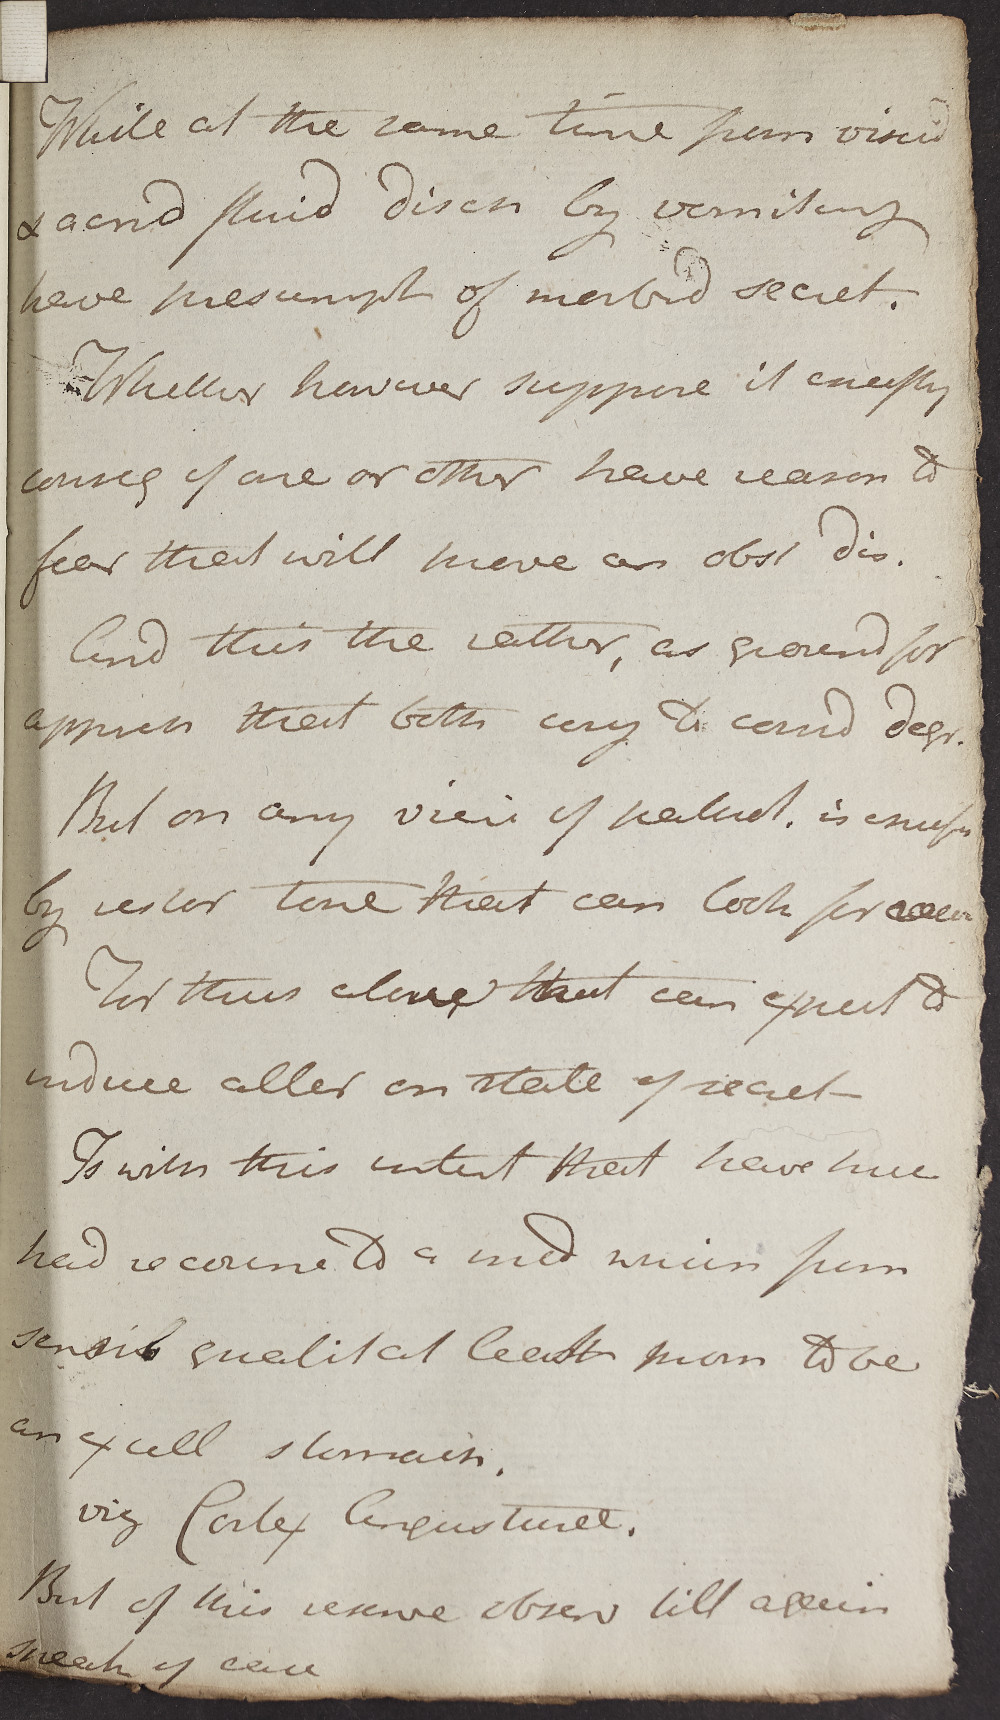 While at the same time from viscid
& acrid fluid disch by vomiting
have presumpt of morbid secret.
Whether however suppose it chiefly
conseq of one or other have reason to
fear that will prove an obst dis.
And this the rather, as ground for
appreh that both conj to consid degr.
But on any view of patholt. is chiefly
by restor tone that can look for
For thus alone that can expect to
induce alter on state of secret
Is with this intent that have here
had recourse to a med which from
sensib qualit at least prom to be
an excell stomach.
viz Cortex Angusturae.
But of this reserve observ till again
speak of case